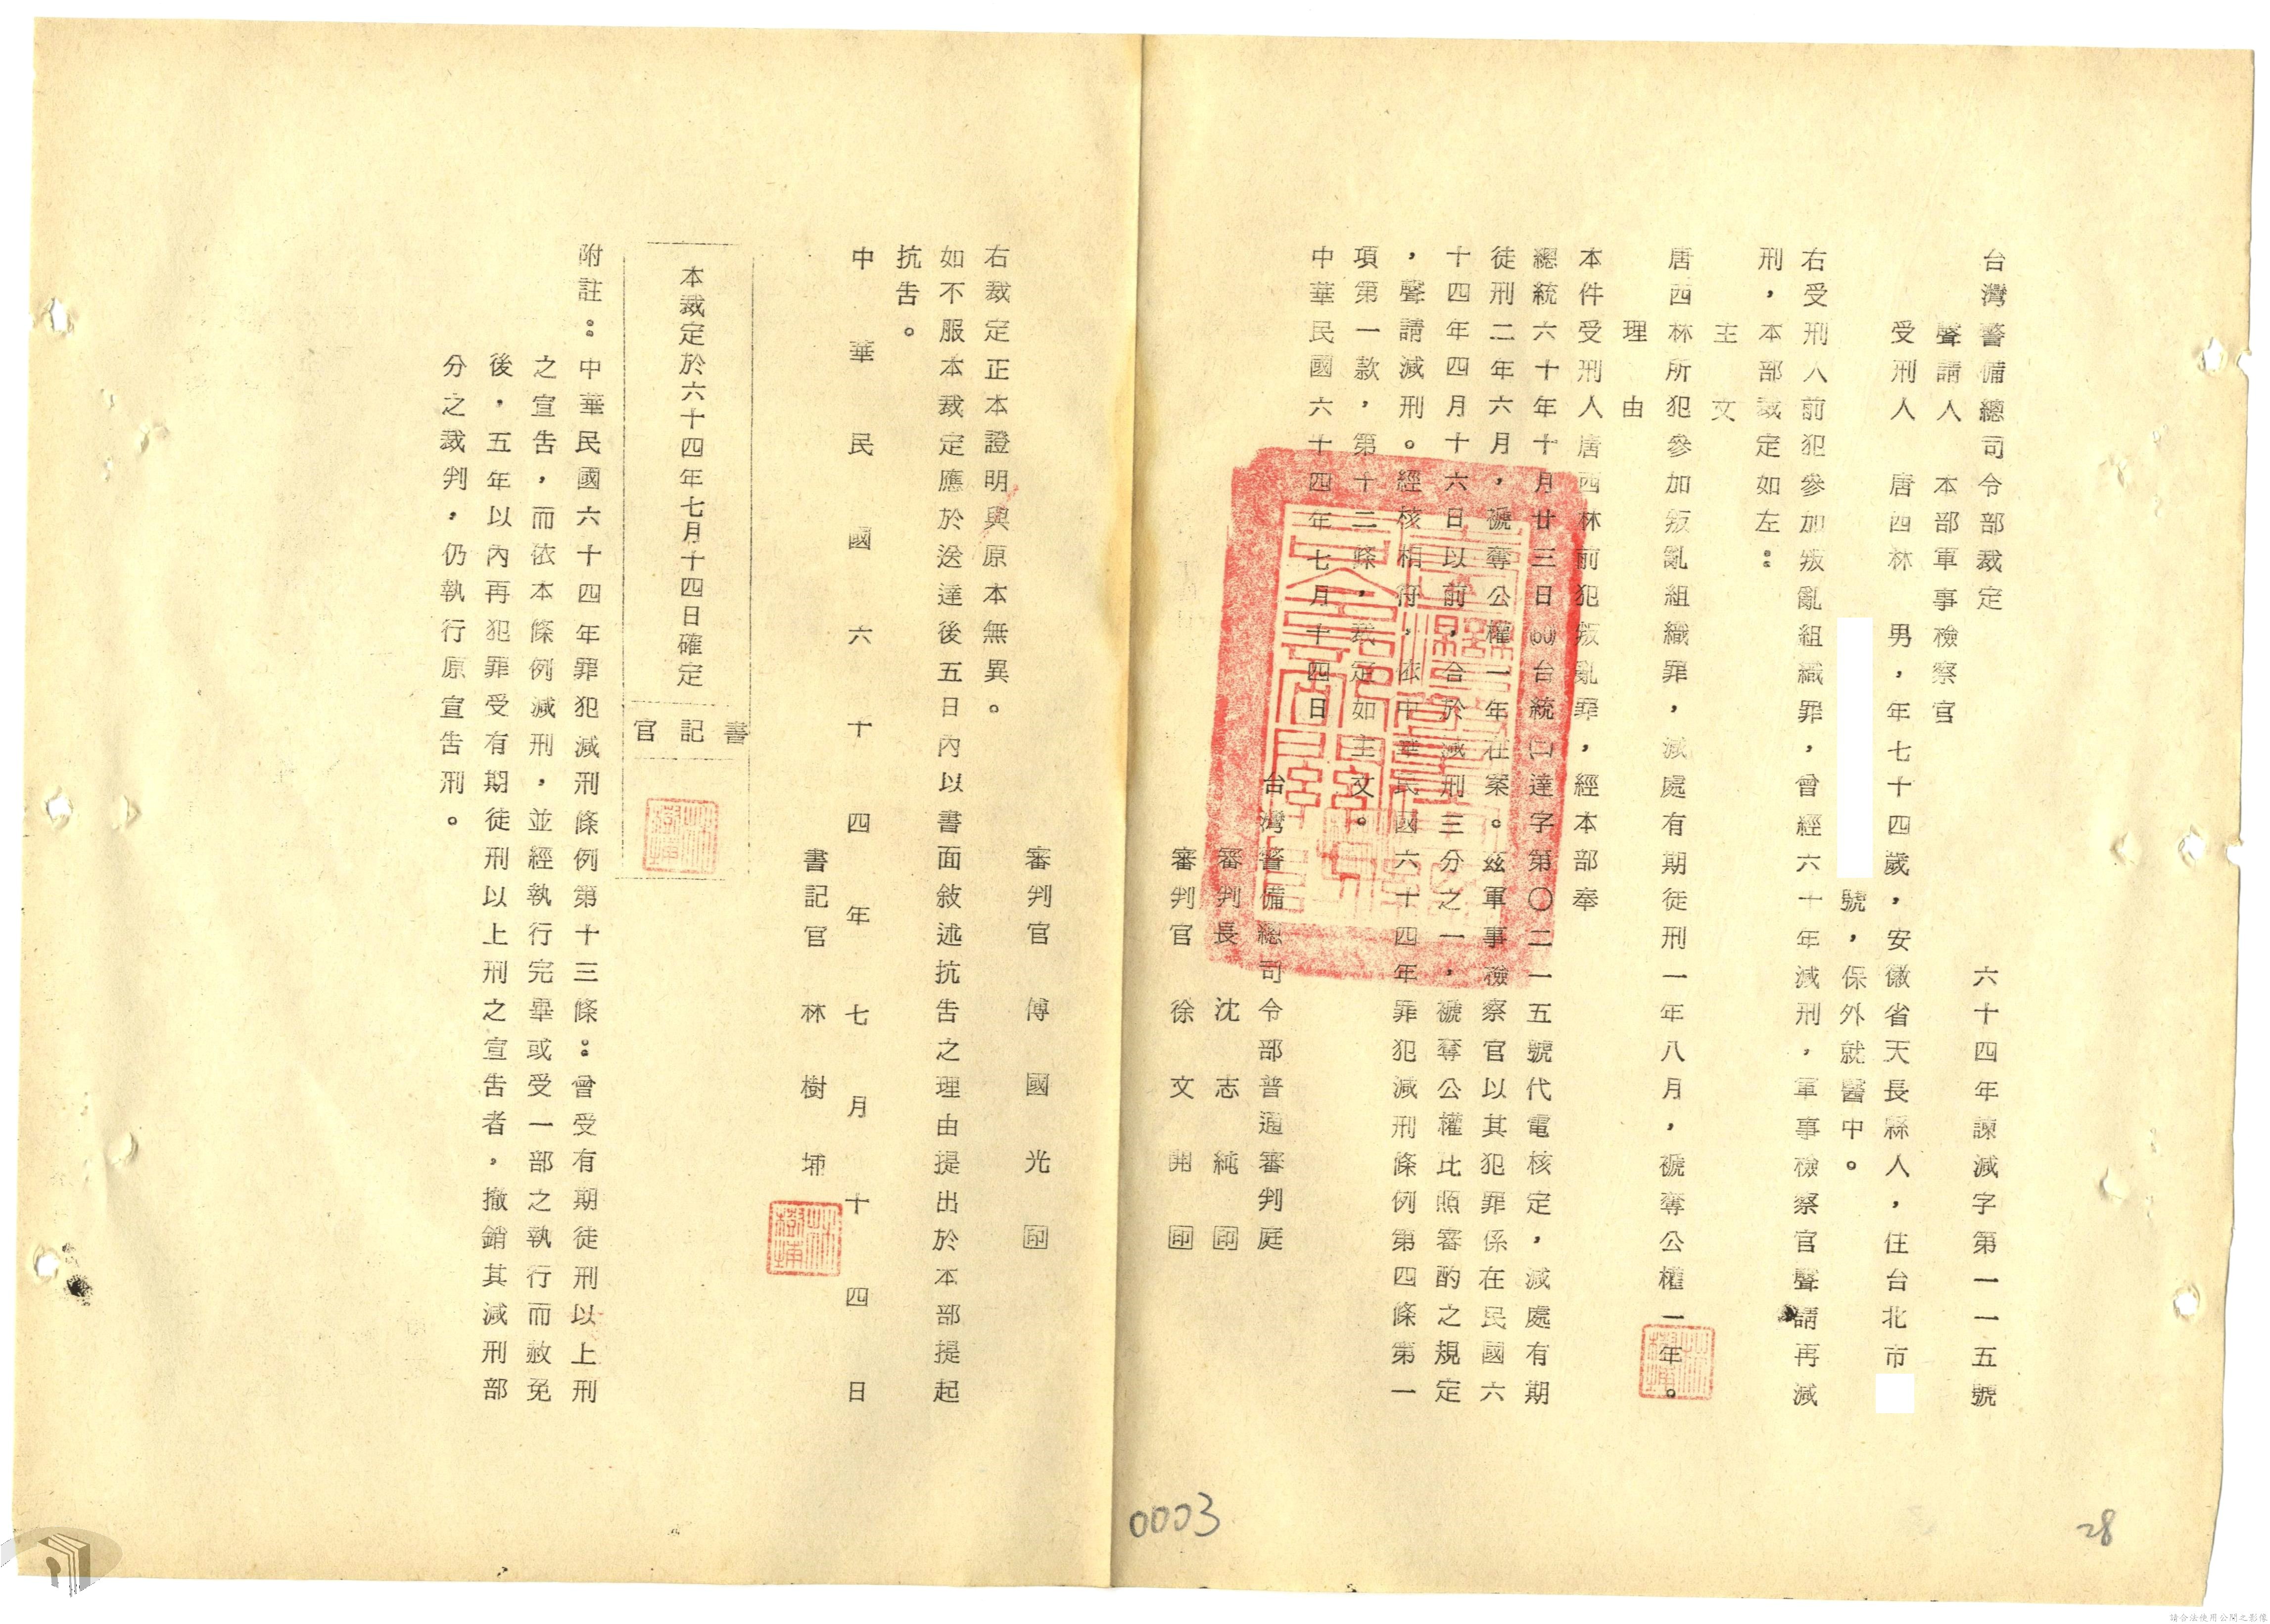 台灣警備總司令部裁定　六十四年諫減字第一一五號
聲請人　本部軍事檢察官
受刑人　唐四林　男，年七十四歲，安徽省天長縣人，住台北市
號，保外就醫中。
右受刑人前犯參加叛亂組織罪，曾經六十年減刑，軍事檢察官聲請再減
刑，本部裁定如左：
主文
唐西林所犯參加叛亂組織罪，減處有期徒刑一年八月，褫奪公權一年。
理由
本件受刑人唐西林前犯叛亂罪，經本部奉
總統六十年十月廿三日(60)台統(二)達字第〇二一五號代電核定，減處有期
徒刑二年六月，褫奪公權一年在案。茲軍事檢察官以其犯罪係在民國六
十四年四月十六日以前，合於減刑三分之一，褫奪公權比照審酌之規定
，聲請減刑。經核相符，依中華民國六十四年罪犯減刑條例第四條第一
項第一款，第十二條，裁定如主文。
中華民國六十四年七月十四日
台灣警備總司令部普通審判庭
審判長　沈志純　印
審判官　徐文開　印
審判官　傅國光　印
右裁定正本證明與原本無異。
如不服本裁定應於送達後五日內以書面敘述抗告之理由提出於本部提起
抗告。
中華民國六十四年七月十四日
書記官　林樹埔
林樹埔
本裁定於六十四年七月十四日確定
書記官
附註：中華民國六十四年罪犯減刑條例第十三條：曾受有期徒刑以上刑
之宣告，而依本條例減刑，並經執行完畢或受一部之執行而赦免
後，五年以內再犯罪受有期徒刑以上刑之宣告者，撤銷其減刑部
分之裁判，仍執行原宣告刑。
0003
28
請合法使用公開之影像